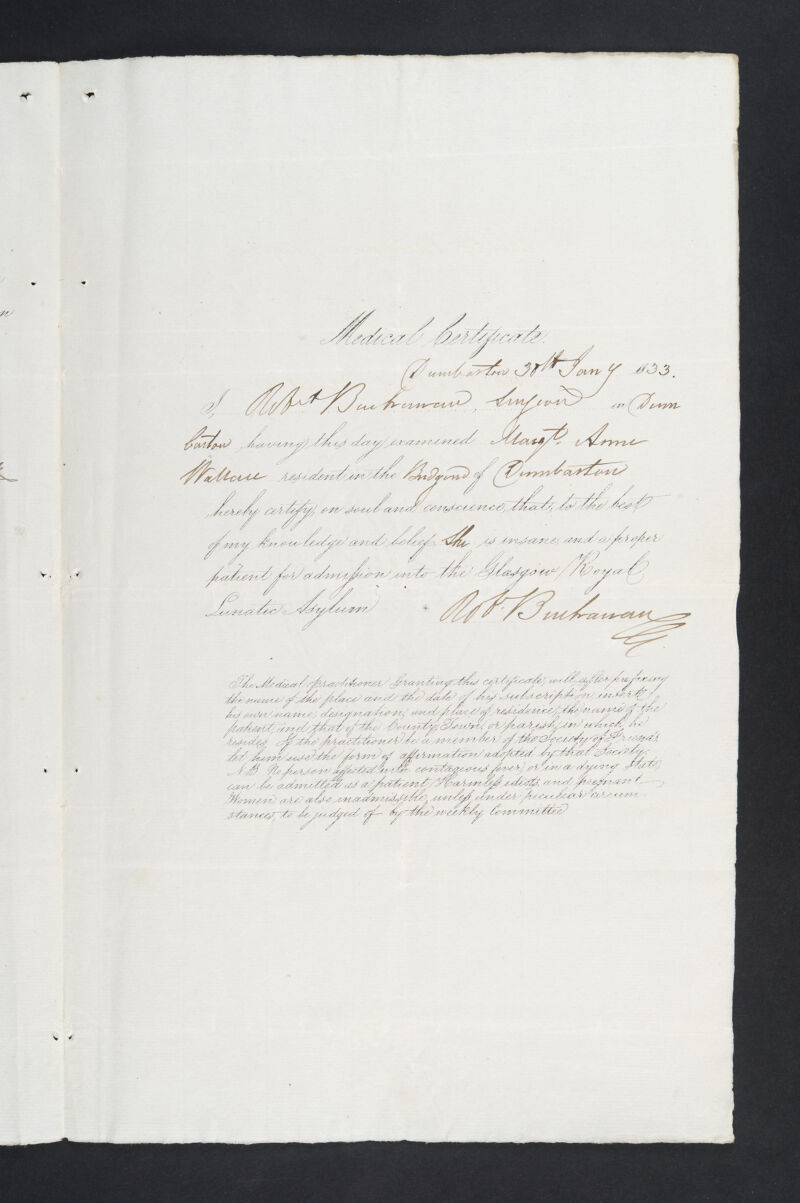 Medical Certificate.
Dumbarton 30th Jany 1833.
I, Robt Buchanan, Surgeon in Dum
barton having this day examined Margt. Anne
Wallace resident in the Bridgend of Dumbarton
hereby certify on soul and conscience, that, to the best
of my knowledge and belief She is insane and a proper
patient for admission into the Glasgow Royal
Lunatic Asylum
Robt. Buchanan
The Medical practitioner Granting this certificate, will after prefixing
the name of the place and the date of his subscription insert
his own name, designation, and place of residence, the name of the
patient, and that of the County, Town, or parish, in which he
resides. If the practitioner be a member of the Society of Friends
let him use the form of affirmation adopted by that Society.
N.B. No person affected with contagious fever, or in a dying state
can be admitted as a patient, Harmless idiots, and pregnant
Women are also inadmissible, unless under peculiar circum
stances, to be judged of by the weekly Committee